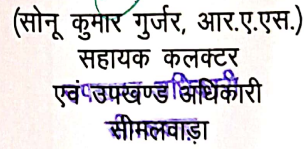 (सोनू कुमार गुर्जर, आर.ए.एस.)
सहायक कलक्टर
एवं उपखण्ड अधिकारी
सीमलवाड़ा